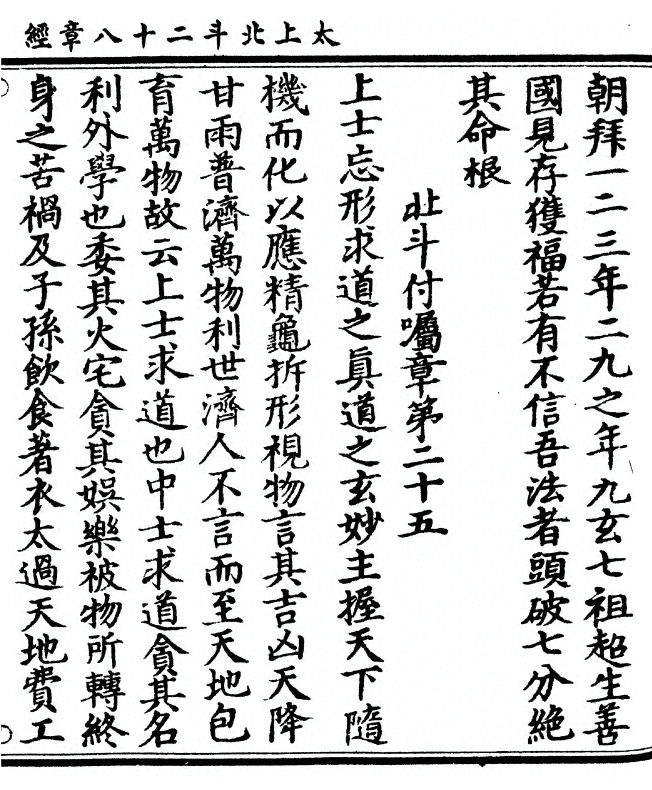 太上北斗二十八章經
朝拜一二三年二九之年九玄七祖超生善
國見存獲福若有不信吾法者頭破七分絕
其命根
北斗付囑章第二十五
上士忘形求道之眞道之玄妙主握天下隨
機而化以應精龜拆形視物言其吉凶天降
甘雨普濟萬物利世濟人不言而至天地包
育萬物故云上士求道也中士求道貪其名
利外學也委其火宅貪其娛樂被物所轉終
身之苦禍及子孫飲食著衣太過天地費工